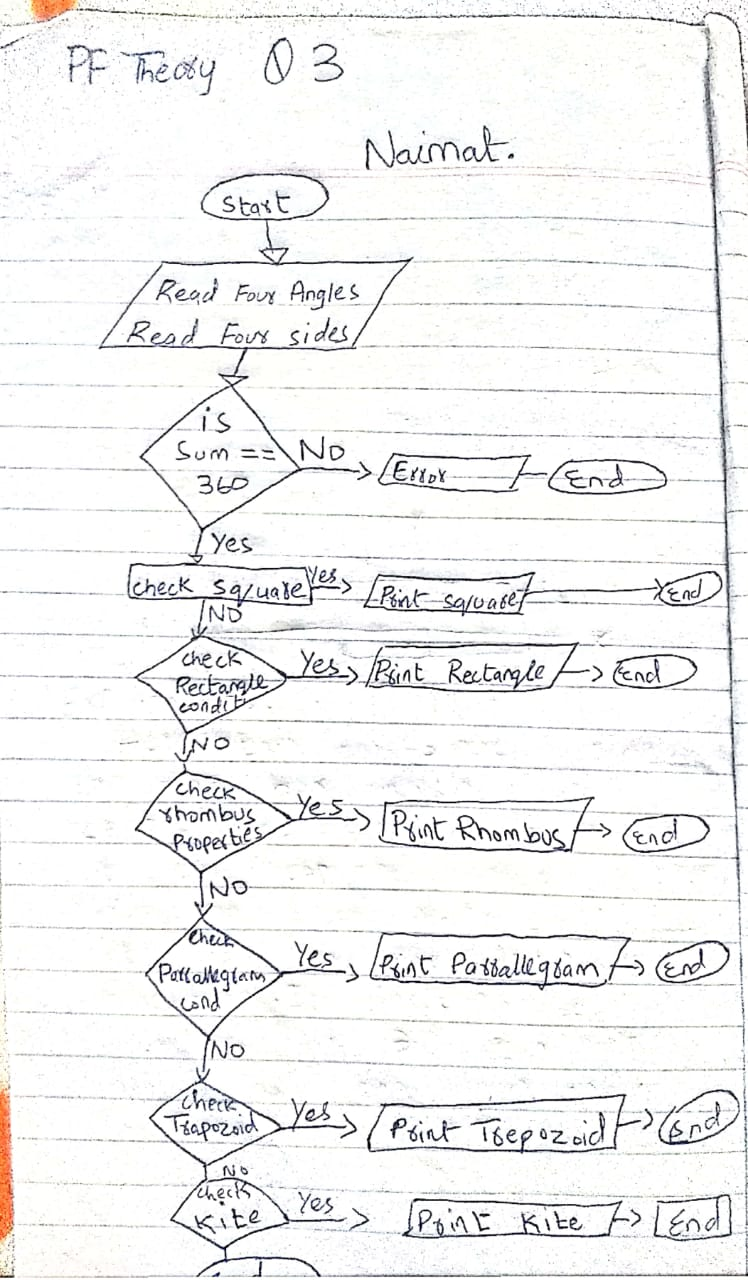 PF Theory Q3
Naimat.
Start
Read Four Angles
Read Four sides
is
Sum ==
360
NO
Error
End
Yes
check square
Yes
Print square
End
NO
check
Rectangle
condit
Yes
Print Rectangle
End
NO
check
rhombus
Properties
Yes
Print Rhombus
End
NO
check
Parrallegram
cond
Yes
Print Parrallegram
End
NO
check
Trapozoid
Yes
Print Trepozoid
End
No
check
Kite
Yes
Print Kite
End